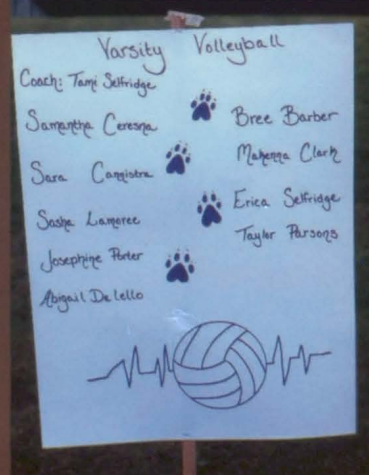 Varsity Volleyball
Coach: Tami Selfridge
Samantha Ceresna
Sara Cannistra
Sasha Lamoree
Josephine Porter
Abigail De lello
Bree Barber
Makenna Clark
Erica Selfridge
Taylor Parsons